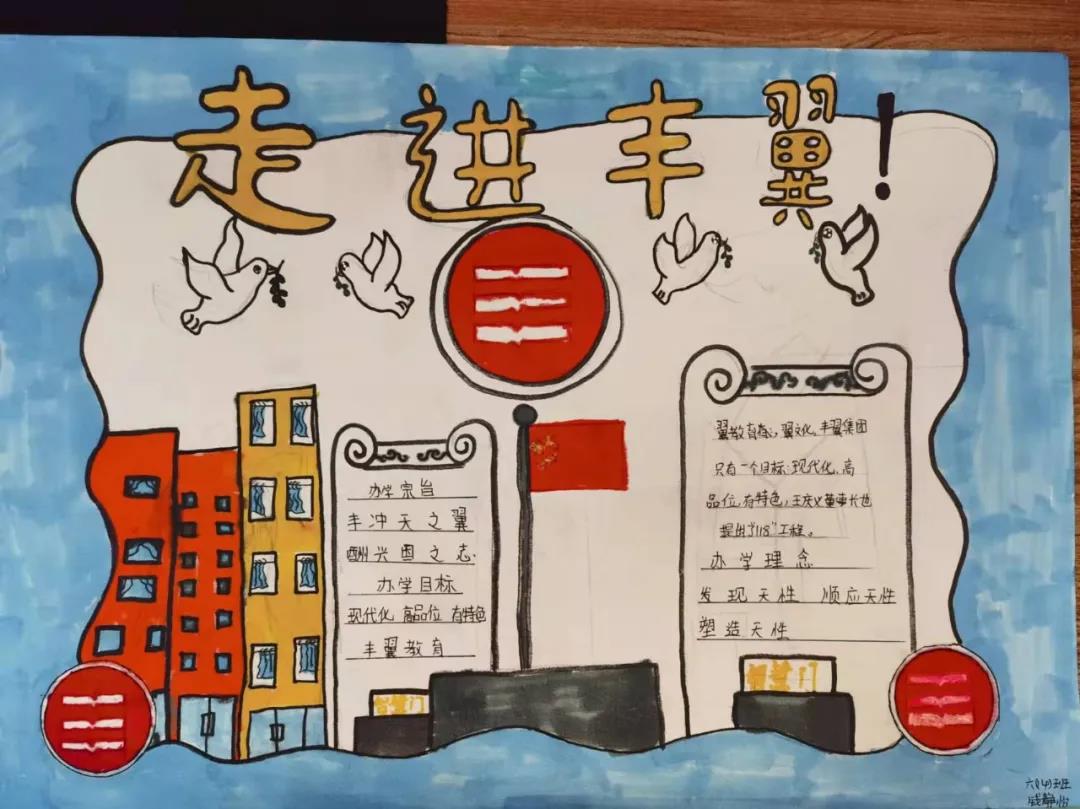 走进丰翼！
办学宗旨
丰冲天之翼
酬兴国之志
办学目标
现代化 高品位 有特色
丰翼教育
翼教育核心，翼文化，丰翼集团
只有一个目标：现代化，高
品位，有特色，王庆义董事长也
提出“118”工程。
办学理念
发现天性 顺应天性
塑造天性
智慧门
智慧门
六(4)班